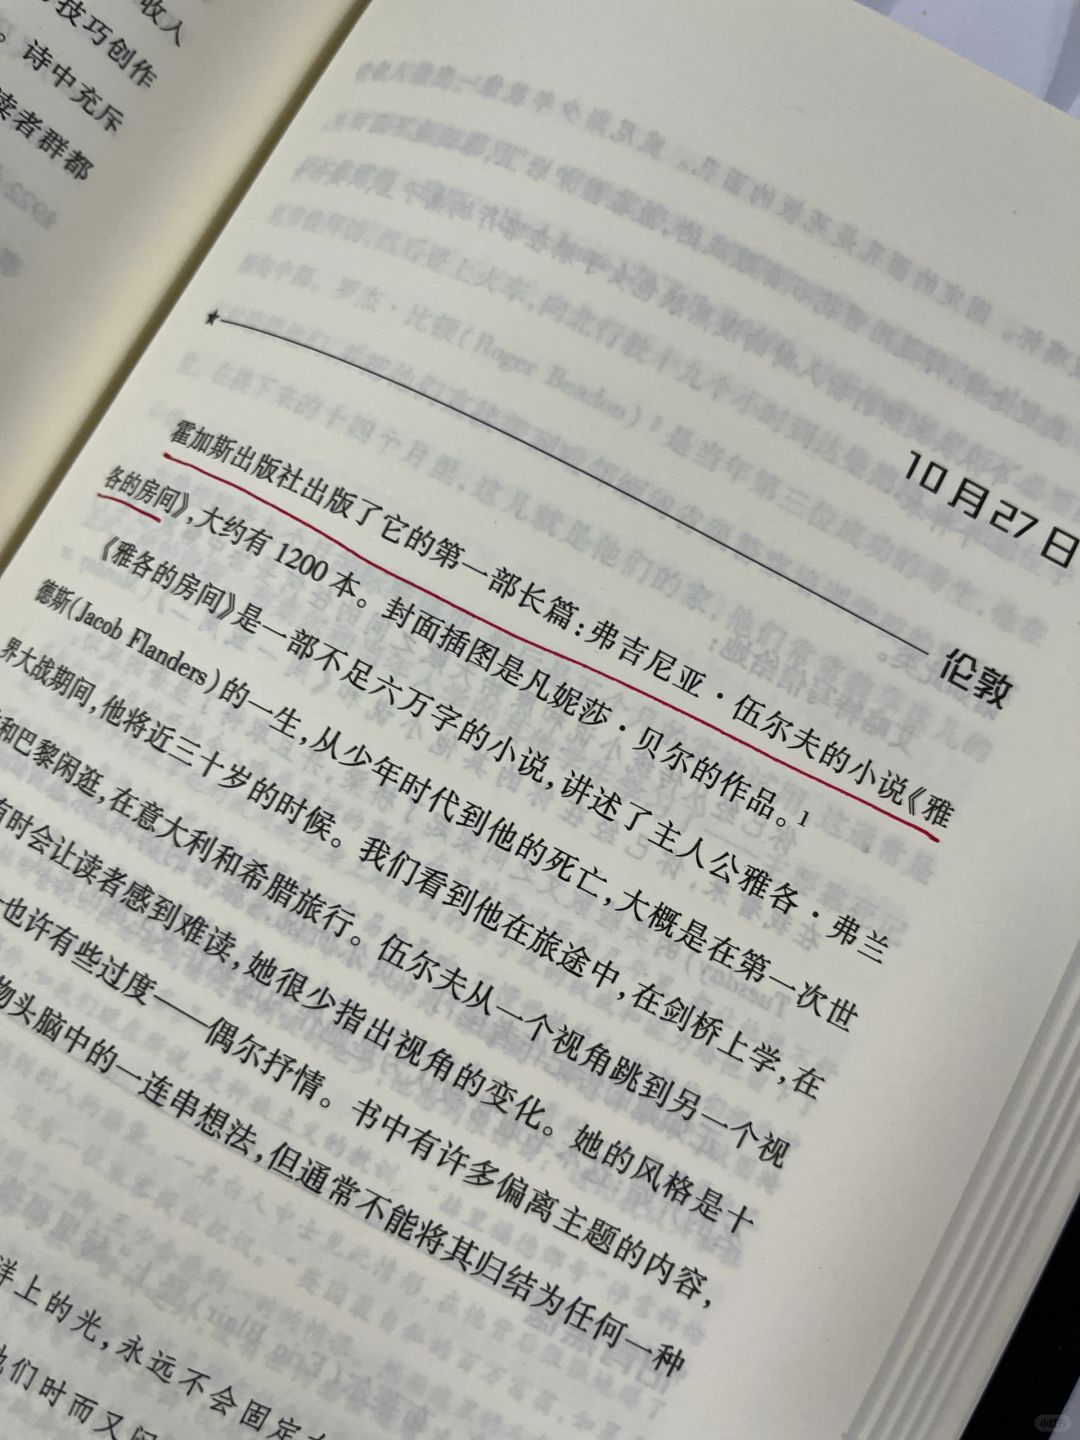 收入
技巧创作
。诗中充斥
读者群都
1922
10月27日
伦敦
霍加斯出版社出版了它的第一部长篇：弗吉尼亚·伍尔夫的小说《雅
各的房间》，大约有1200本。封面插图是凡妮莎·贝尔的作品。1
《雅各的房间》是一部不足六万字的小说，讲述了主人公雅各·弗兰
德斯（Jacob Flanders）的一生，从少年时代到他的死亡，大概是在第一次世
界大战期间，他将近三十岁的时候。我们看到他在旅途中，在剑桥上学，在
和巴黎闲逛，在意大利和希腊旅行。伍尔夫从一个视角跳到另一个视
有时会让读者感到难读，她很少指出视角的变化。她的风格是十
也许有些过度——偶尔抒情。书中有许多偏离主题的内容，
物头脑中的一连串想法，但通常不能将其归结为任何一种
洋上的光，永远不会固定
他们时而又